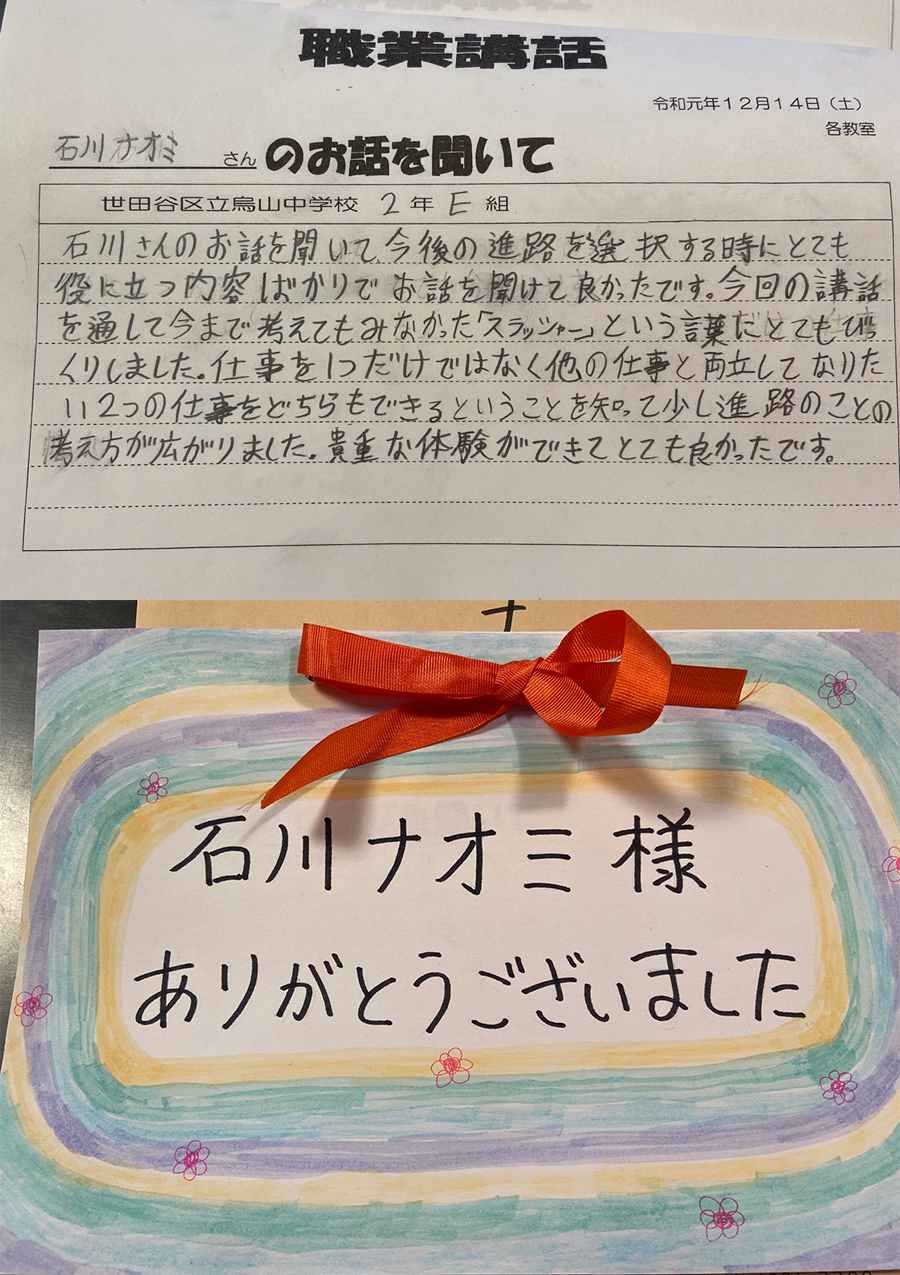 職業講話
令和元年12月14日(土)
各教室
石川ナオミ さん のお話を聞いて
世田谷区立烏山中学校 2年 E 組
石川さんのお話を聞いて今後の進路を選択する時にとても
役に立つ内容ばかりでお話を聞けて良かったです。今回の講話
を通して今まで考えてもみなかった「スラッシャー」という言葉にとてもびっ
くりしました。仕事を1つだけではなく他の仕事と両立してなりた
い2つの仕事をどちらもできるということを知って少し進路のことの
考え方が広がりました。貴重な体験ができてとても良かったです。
石川ナオミ様
ありがとうございました